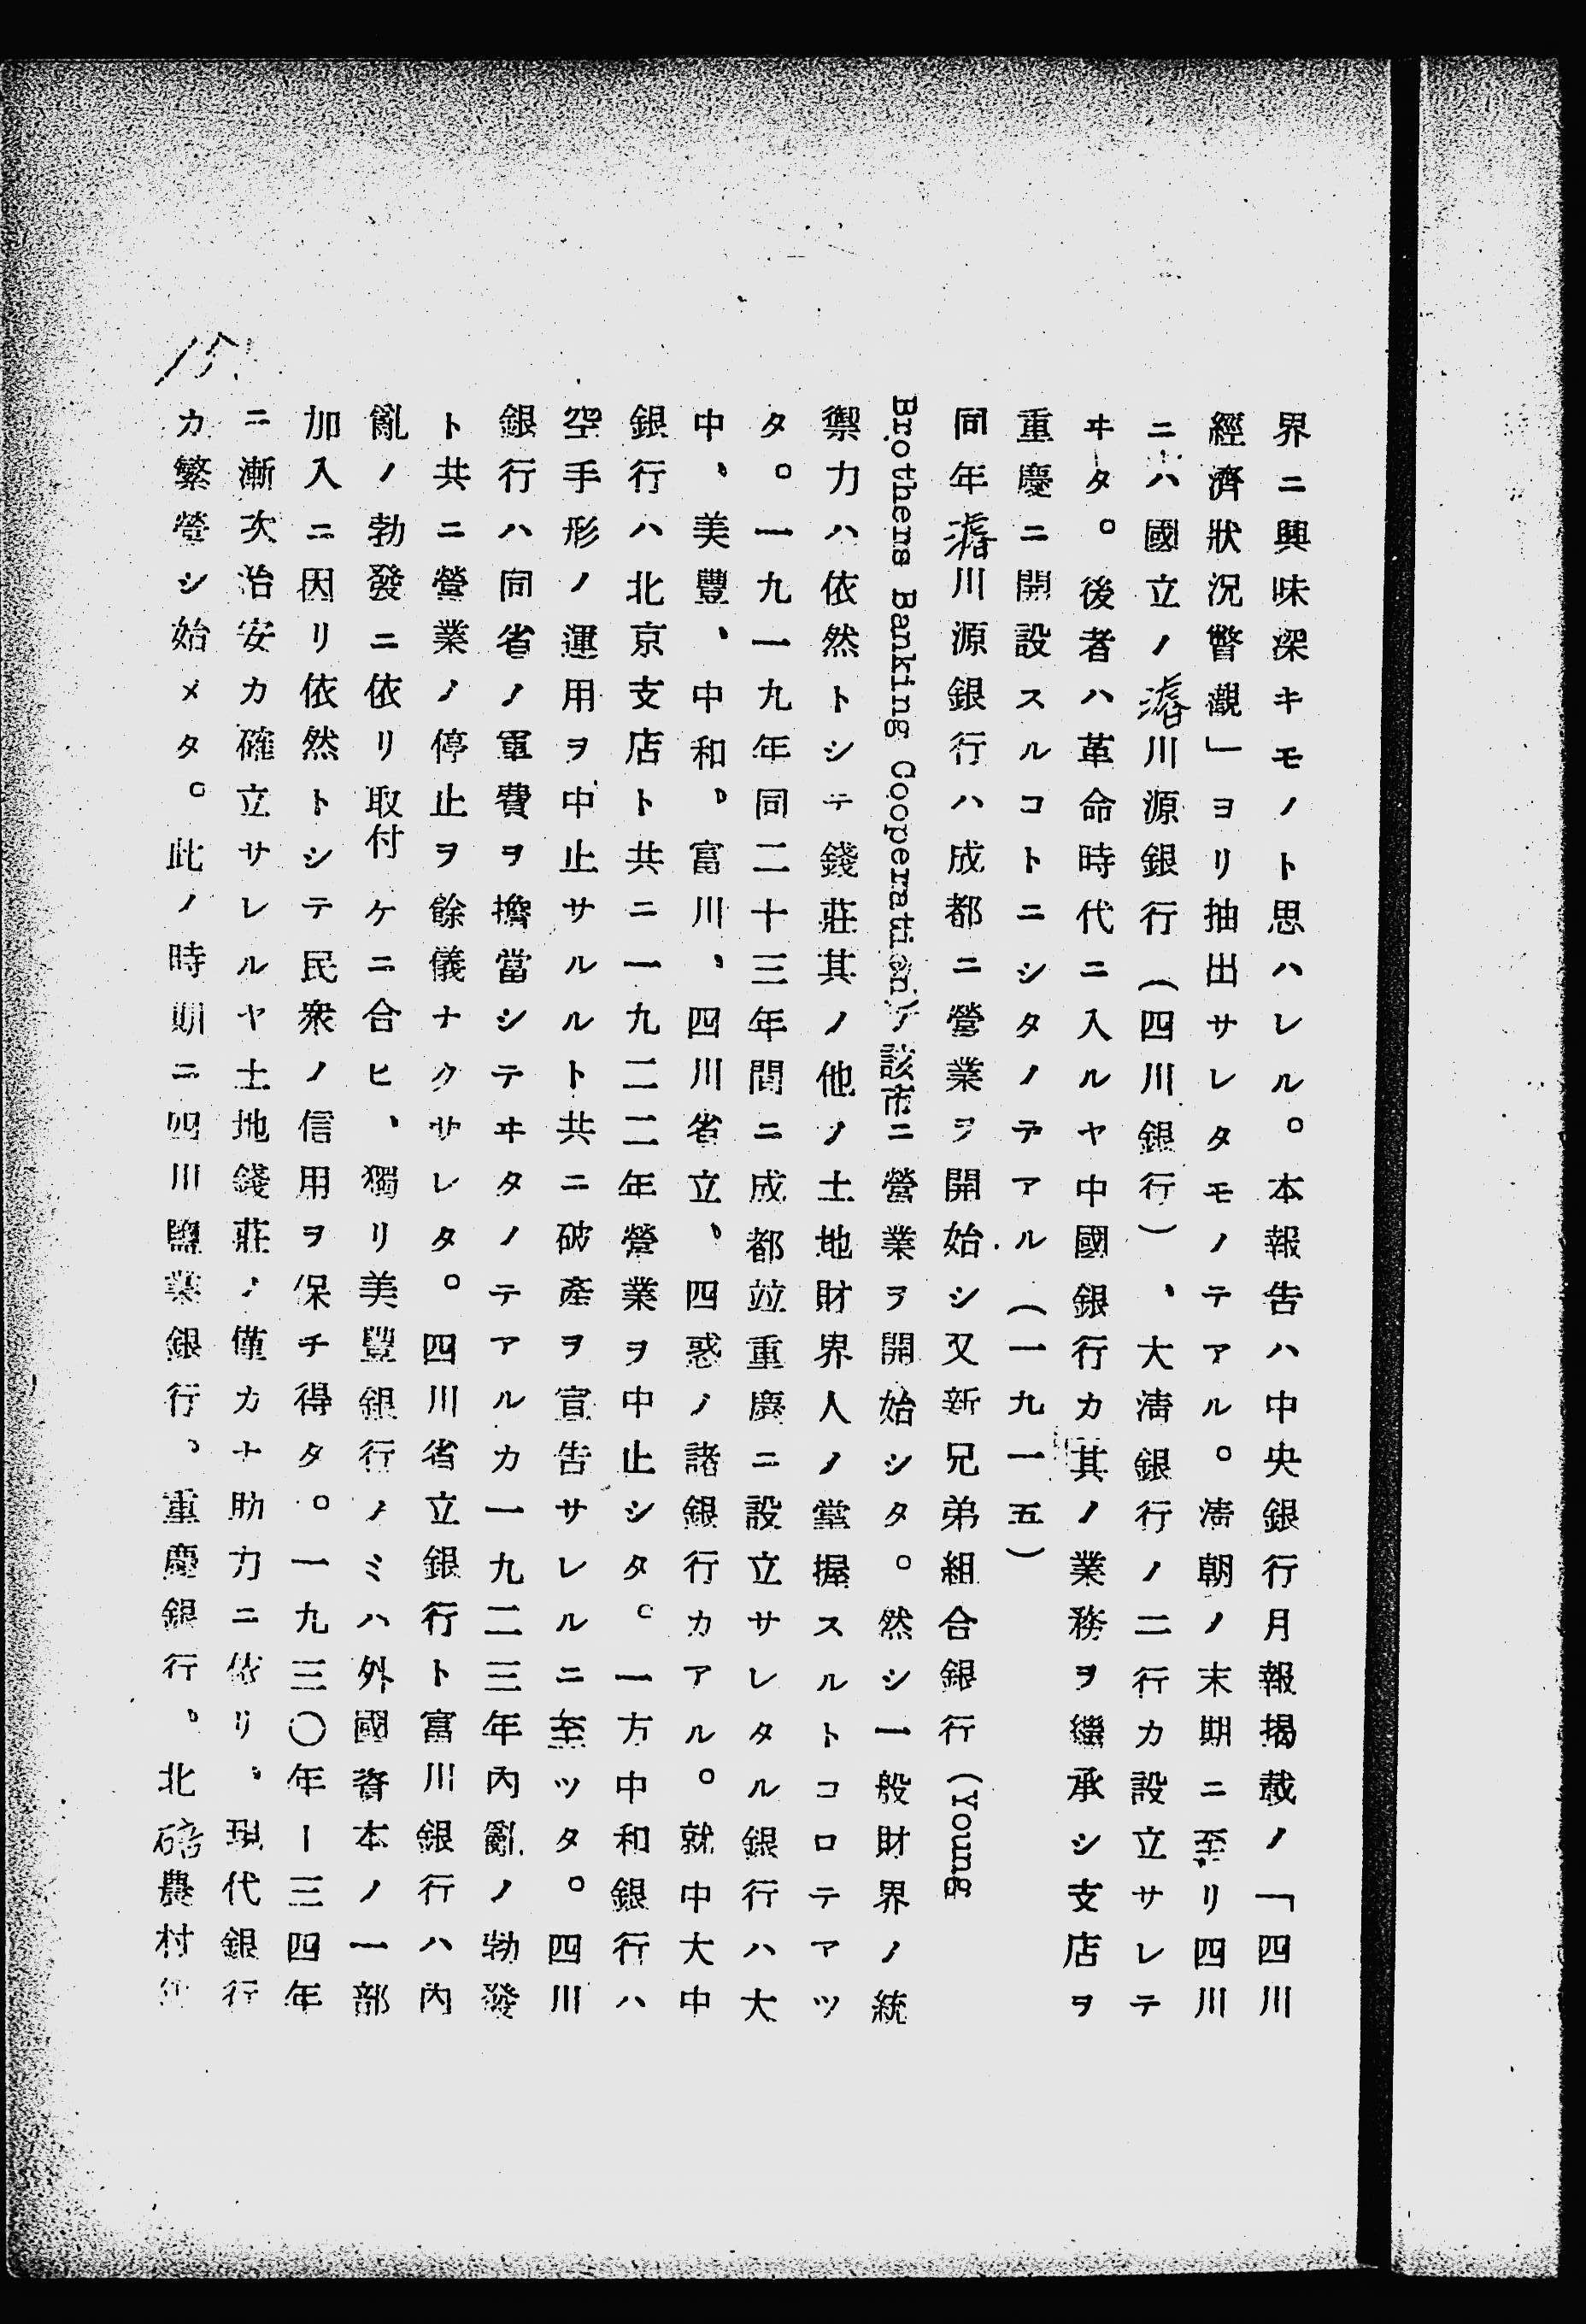 界ニ興味深キモノト思ハレル。本報告ハ中央銀行月報揭載ノ「四川
經濟狀況瞥觀」ヨリ抽出サレタモノテアル。淸朝ノ末期ニ至リ四川
ニハ國立ノ濬川源銀行（四川銀行）、大淸銀行ノ二行カ設立サレテ
ヰタ。後者ハ革命時代ニ入ルヤ中國銀行カ其ノ業務ヲ繼承シ支店ヲ
重慶ニ開設スルコトニシタノテアル（一九一五）
同年濬川源銀行ハ成都ニ營業ヲ開始シ又新兄弟組合銀行（Young
Brothens Banking Cooperation）カ該市ニ營業ヲ開始シタ。然シ一般財界ノ統
禦力ハ依然トシテ錢莊其ノ他ノ土地財界人ノ掌握スルトコロテアツ
タ。一九一九年同二十三年間ニ成都竝重慶ニ設立サレタル銀行ハ大
中、美豐、中和、富川、四川省立、四惑ノ諸銀行カアル。就中大中
銀行ハ北京支店ト共ニ一九二二年營業ヲ中止シタ。一方中和銀行ハ
空手形ノ運用ヲ中止サルルト共ニ破產ヲ宣告サレルニ至ツタ。四川
銀行ハ同省ノ軍費ヲ擔當シテヰタノテアルカ一九二三年內亂ノ勃發
ト共ニ營業ノ停止ヲ餘儀ナクサレタ。四川省立銀行ト富川銀行ハ內
亂ノ勃發ニ依リ取付ケニ合ヒ、獨リ美豐銀行ノミハ外國資本ノ一部
加入ニ因リ依然トシテ民衆ノ信用ヲ保チ得タ。一九三〇年ー三四年
ニ漸次治安カ確立サレルヤ土地錢莊ノ僅カナ助力ニ依リ、現代銀行
カ繁營シ始メタ。此ノ時期ニ四川鹽業銀行、重慶銀行、北碚農村
15